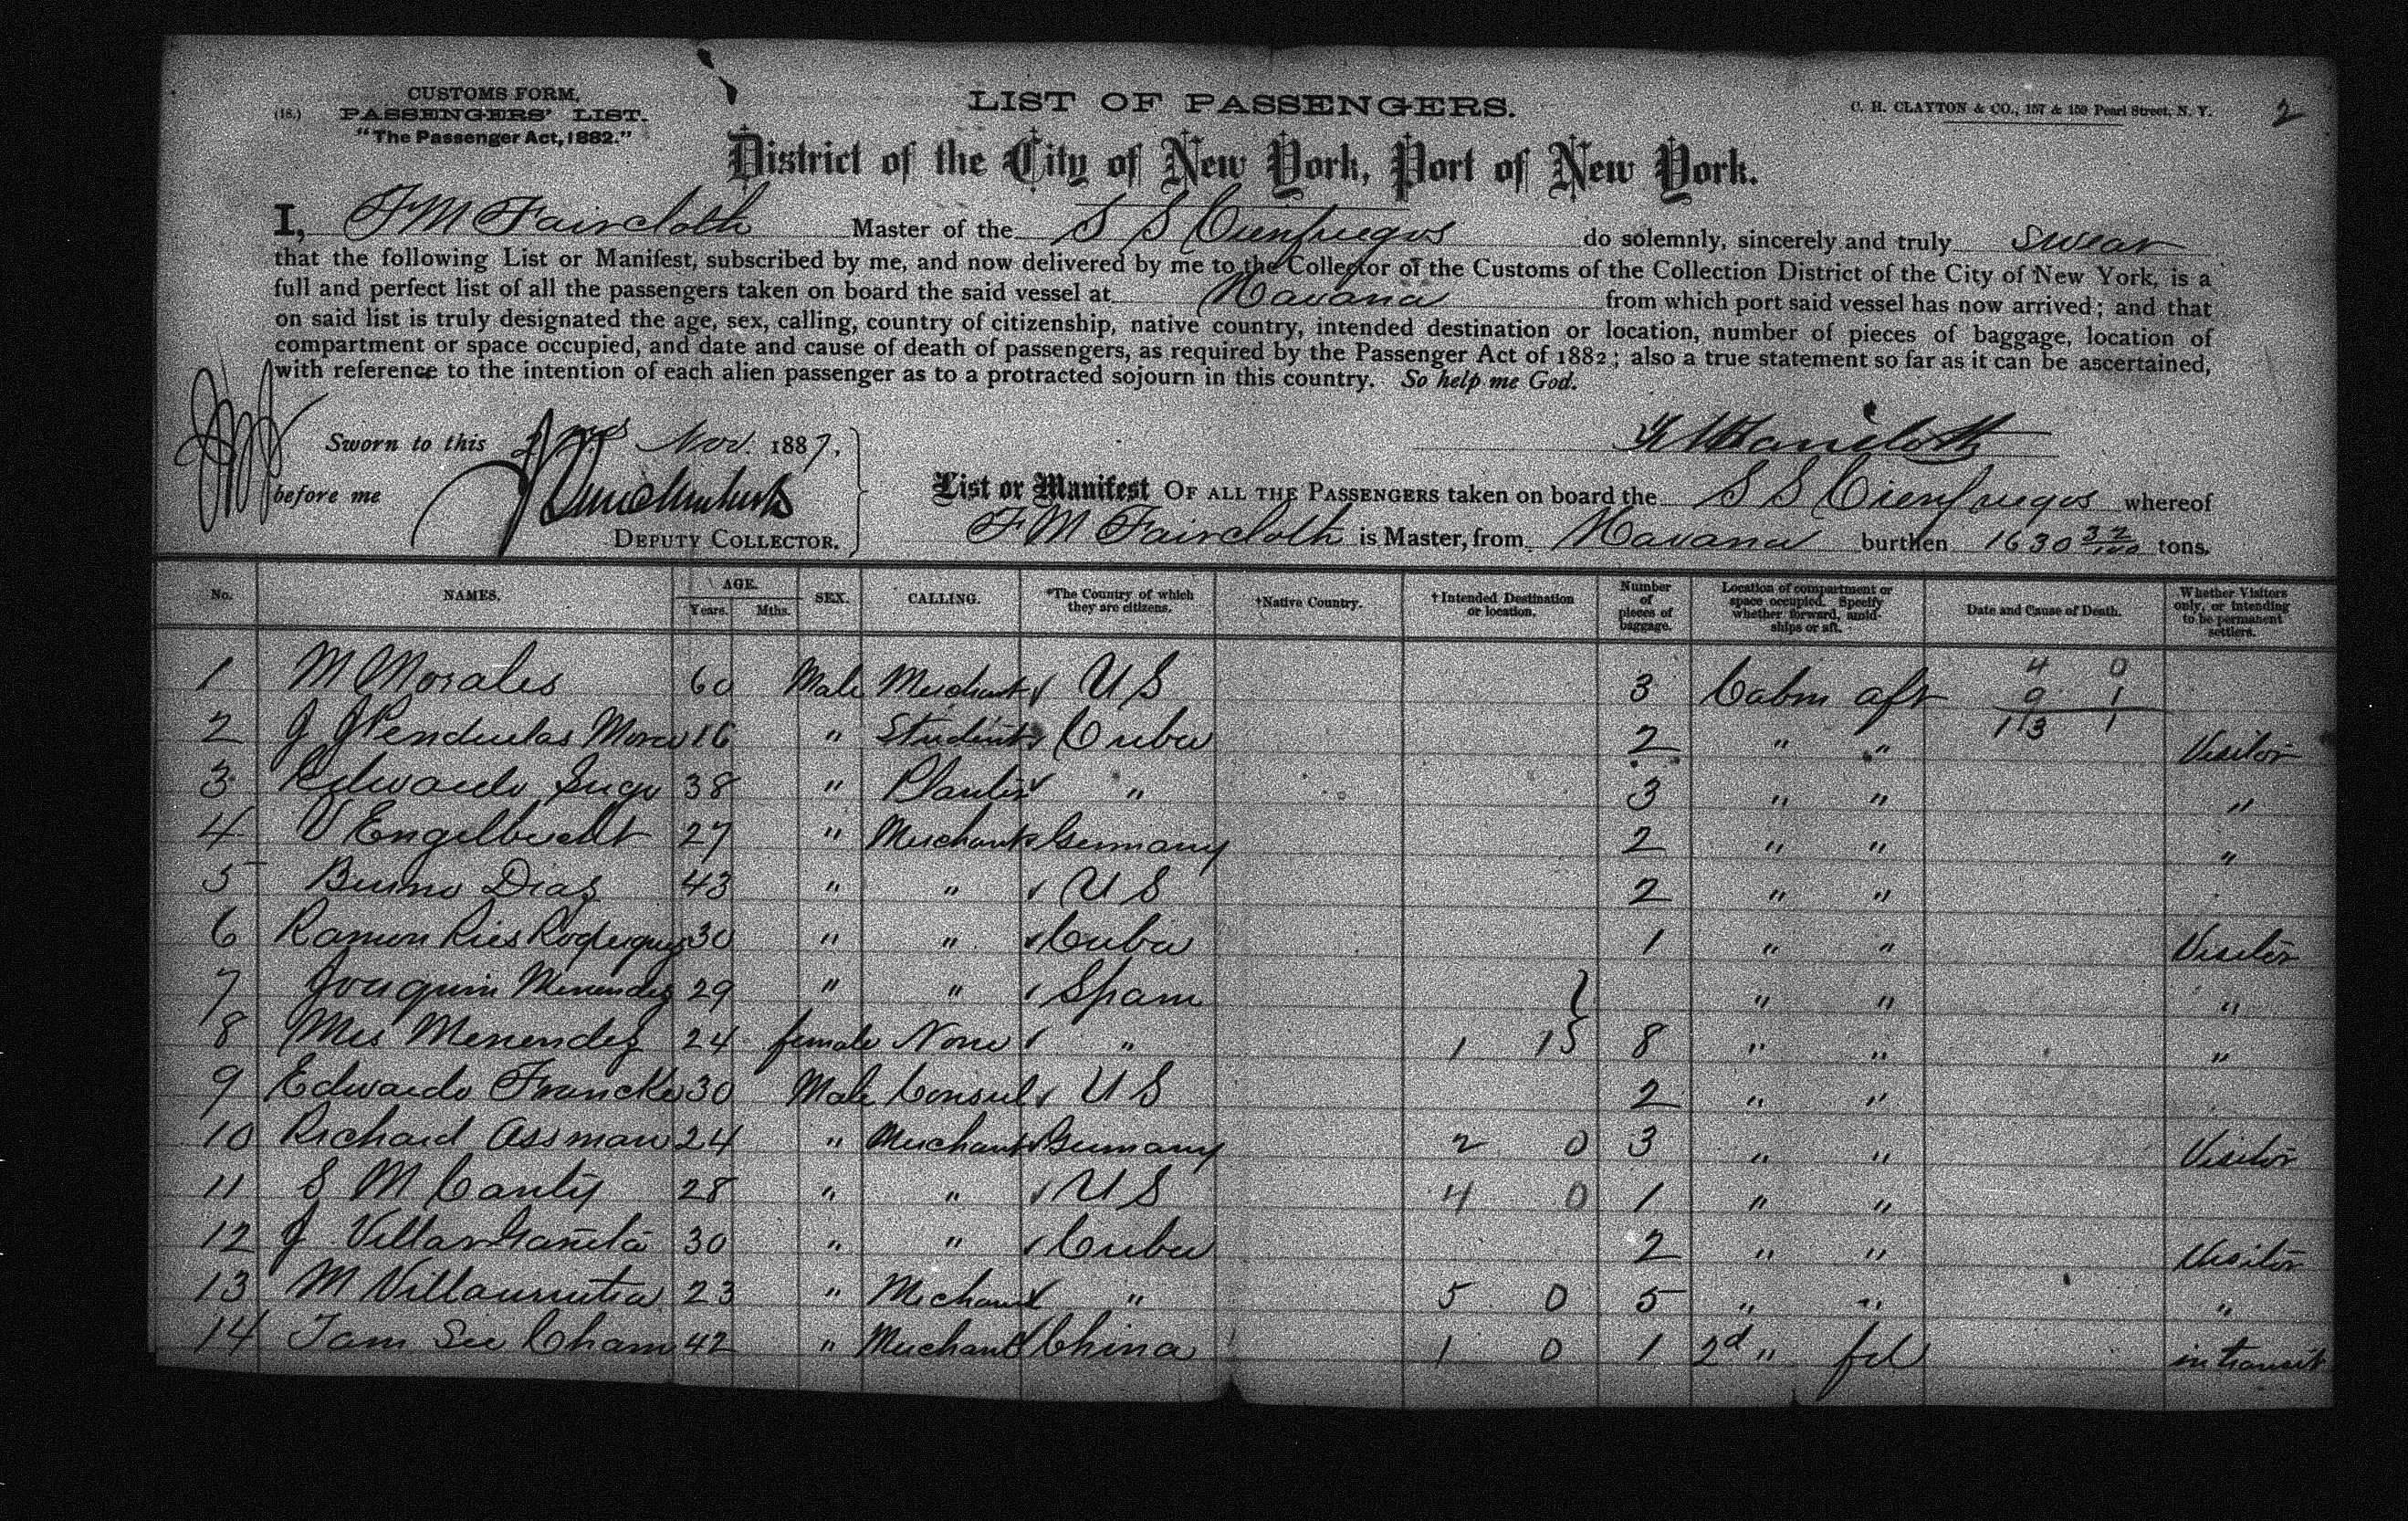 CUSTOMS FORM,
(18.) PASSENGERS' LIST.
"The Passenger Act, 1882."
LIST OF PASSENGERS.
C. H. CLAYTON & CO., 157 & 159 Pearl Street, N. Y.
2
District of the City of New York, Port of New York.
I, F M Faircloth Master of the S S Cienfuegos do solemnly, sincerely and truly swear
that the following List or Manifest, subscribed by me, and now delivered by me to the Collector of the Customs of the Collection District of the City of New York, is a
full and perfect list of all the passengers taken on board the said vessel at Havana from which port said vessel has now arrived; and that
on said list is truly designated the age, sex, calling, country of citizenship, native country, intended destination or location, number of pieces of baggage, location of
compartment or space occupied, and date and cause of death of passengers, as required by the Passenger Act of 1882; also a true statement so far as it can be ascertained,
with reference to the intention of each alien passenger as to a protracted sojourn in this country. So help me God.
F M Faircloth
Sworn to this Nov. 1887,
before me
DEPUTY COLLECTOR.
List or Manifest OF ALL THE PASSENGERS taken on board the S S Cienfuegos whereof
F M Faircloth is Master, from Havana burthen 1630 32/100 tons.
No. NAMES. AGE. Years. Mths. SEX. CALLING. *The Country of which they are citizens. †Native Country. †Intended Destination or location. Number of pieces of baggage. Location of compartment or space occupied. Specify whether forward, amidships or aft. Date and Cause of Death. Whether Visitors only, or intending to be permanent settlers.
1 M Morales 60 Male Merchant U S 3 Cabin aft 4 0
9 1
113 1
2 J J 16 " Student Cuba 2 " " Visitor
3 Edwardo 38 " Planter " 3 " " "
4 V Engelbrecht 27 " Merchant Germany 2 " " "
5 Bruno Diaz 43 " " U S 2 " "
6 Ramon Ries 30 " " Cuba 1 " " Visitor
7 Joaquin Menendez 29 " " Spain " " "
8 Mrs Menendez 24 female None " 1 15 8 " " "
9 Edwardo Francke 30 Male Consul U S 2 " "
10 Richard Assman 24 " Merchant Germany 2 0 3 " " Visitor
11 S M Canty 28 " " U S 4 0 1 " "
12 J Villar 30 " " Cuba 2 " " Visitor
13 M Villaurrutia 23 " Mechant " 5 0 5 " " "
14 Tam See Cham 42 " Merchant China 1 0 1 2d " fd in transit